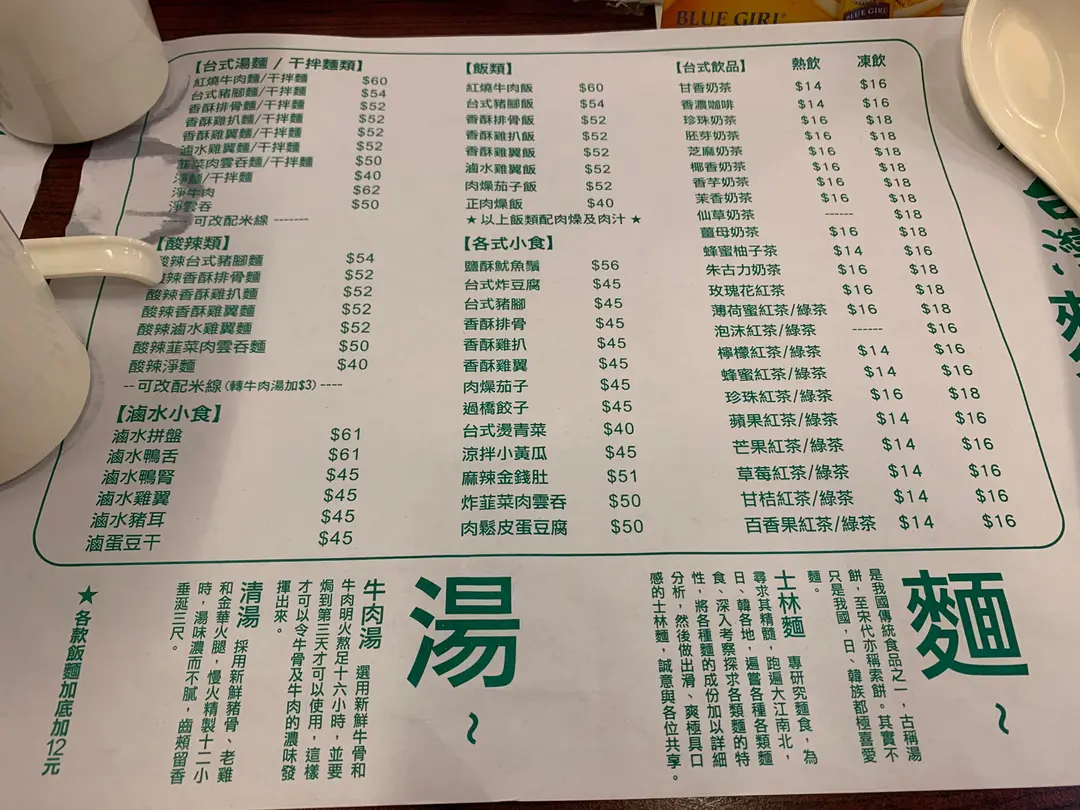 BLUE GIRL
BLUE GIRL
【台式湯麵 / 干拌麵類】
紅燒牛肉麵/干拌麵 $60
台式豬腳麵/干拌麵 $54
香酥排骨麵/干拌麵 $52
香酥雞扒麵/干拌麵 $52
香酥雞翼麵/干拌麵 $52
滷水雞翼麵/干拌麵 $52
韮菜肉雲吞麵/干拌麵 $50
淨麵/干拌麵 $40
淨牛肉 $62
淨雲吞 $50
----- 可改配米線 -------
【酸辣類】
酸辣台式豬腳麵 $54
酸辣香酥排骨麵 $52
酸辣香酥雞扒麵 $52
酸辣香酥雞翼麵 $52
酸辣滷水雞翼麵 $52
酸辣韮菜肉雲吞麵 $50
酸辣淨麵 $40
-- 可改配米線 (轉牛肉湯加$3) ----
【滷水小食】
滷水拼盤 $61
滷水鴨舌 $61
滷水鴨腎 $45
滷水雞翼 $45
滷水豬耳 $45
滷蛋豆干 $45
【飯類】
紅燒牛肉飯 $60
台式豬腳飯 $54
香酥排骨飯 $52
香酥雞扒飯 $52
香酥雞翼飯 $52
滷水雞翼飯 $52
肉燥茄子飯 $52
正肉燥飯 $40
★ 以上飯類配肉燥及肉汁 ★
【各式小食】
鹽酥魷魚鬚 $56
台式炸豆腐 $45
台式豬腳 $45
香酥排骨 $45
香酥雞扒 $45
香酥雞翼 $45
肉燥茄子 $45
過橋餃子 $45
台式燙青菜 $40
涼拌小黃瓜 $45
麻辣金錢肚 $51
炸韮菜肉雲吞 $50
肉鬆皮蛋豆腐 $50
【台式飲品】 熱飲 凍飲
甘香奶茶 $14 $16
香濃咖啡 $14 $16
珍珠奶茶 $16 $18
胚芽奶茶 $16 $18
芝麻奶茶 $16 $18
椰香奶茶 $16 $18
香芋奶茶 $16 $18
茉香奶茶 $16 $18
仙草奶茶 ------ $18
薑母奶茶 $16 $18
蜂蜜柚子茶 $14 $16
朱古力奶茶 $16 $18
玫瑰花紅茶 $16 $18
薄荷蜜紅茶/綠茶 $16 $18
泡沫紅茶/綠茶 ------ $16
檸檬紅茶/綠茶 $14 $16
蜂蜜紅茶/綠茶 $14 $16
珍珠紅茶/綠茶 $16 $18
蘋果紅茶/綠茶 $14 $16
芒果紅茶/綠茶 $14 $16
草莓紅茶/綠茶 $14 $16
甘桔紅茶/綠茶 $14 $16
百香果紅茶/綠茶 $14 $16
麵～
是我國傳統食品之一，古稱湯
餅，至宋代亦稱索餅。其實不
只是我國，日、韓族都極喜愛
麵。
士林麵 專研究麵食，為
尋求其精髓，跑遍大江南北，
日、韓各地，遍嘗各種各類麵
食、深入考察探求各類麵的特
性，將各種麵的成份加以詳細
分析，然後做出滑、爽極具口
感的士林麵，誠意與各位共享。
湯～
牛肉湯 選用新鮮牛骨和
牛肉明火熬足十六小時，並要
焗到第三天才可以使用，這樣
才可以令牛骨及牛肉的濃味發
揮出來。
清湯 採用新鮮豬骨、老雞
和金華火腿，慢火精製十二小
時，湯味濃而不膩，齒頰留香
垂涎三尺。
★ 各款飯麵加底加12元